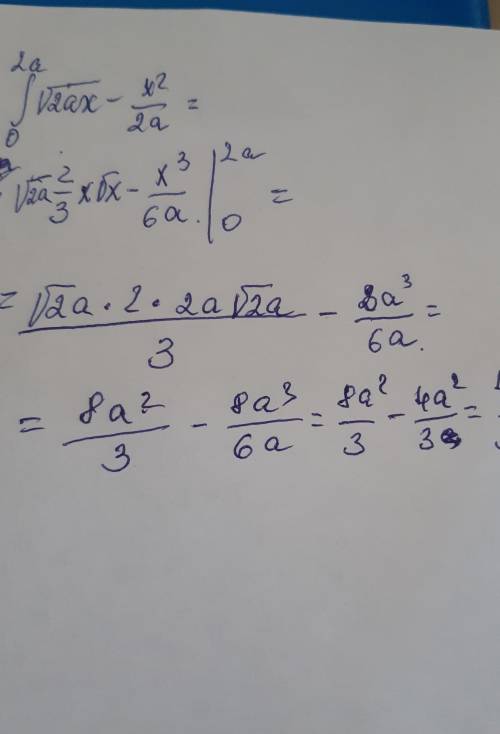 ∫₀²ᵃ √2ax − x²/2a =
√2a 2/3 x√x − x³/6a. |₀²ᵃ =
= √2a · 2 · 2a√2a / 3 − 8a³/6a. =
= 8a²/3 − 8a³/6a = 8a²/3 − 4a²/3 =